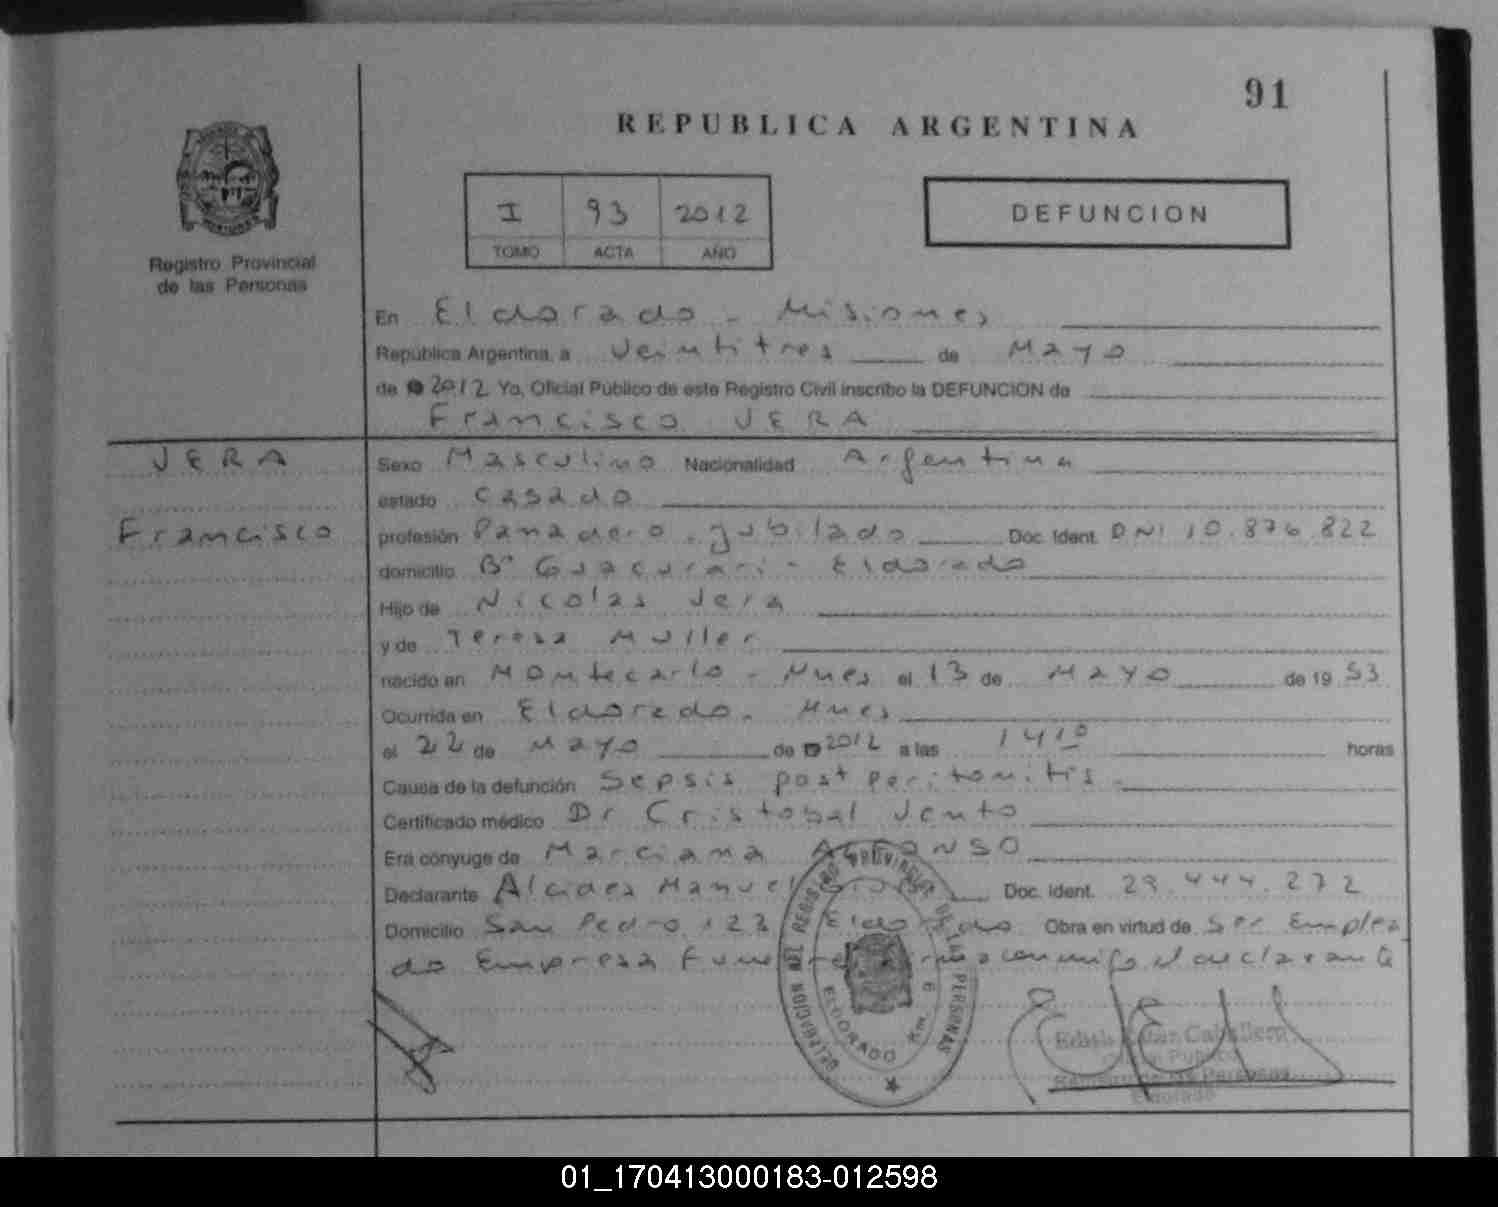 91
REPUBLICA ARGENTINA
I 93 2012
TOMO ACTA AÑO
DEFUNCION
Registro Provincial
de las Personas
En Eldorado - Misiones
República Argentina, a veintitres de Mayo
de 2012 Yo, Oficial Público de este Registro Civil inscribo la DEFUNCION de
Francisco VERA
VERA
Francisco
Sexo Masculino Nacionalidad Argentina
estado Casado
profesión Panadero - jubilado Doc. Ident. DNI 10.876.822
domicilio Bº Guacurari - Eldorado
Hijo de Nicolas Vera
y de Teresa Muller
nacido en Montecarlo - Mnes el 13 de Mayo de 19 53
Ocurrida en Eldorado - Mnes
el 22 de Mayo de 2012 a las 14 10 horas
Causa de la defunción Sepsis post peritonitis -
Certificado médico Dr Cristobal Vento
Era cónyuge de Marciana
Declarante Alcides Manuel Doc. Ident. 29.444.272
Domicilio San Pedro 123 Eldorado Obra en virtud de Ser Emplea
do Empresa conmigo el declarante
DELEGACION DEL REGISTRO PROVINCIAL DE LAS PERSONAS
ELDORADO Km. 6
Caballero
Oficial Público
Registro de las Personas
Eldorado
01_170413000183-012598